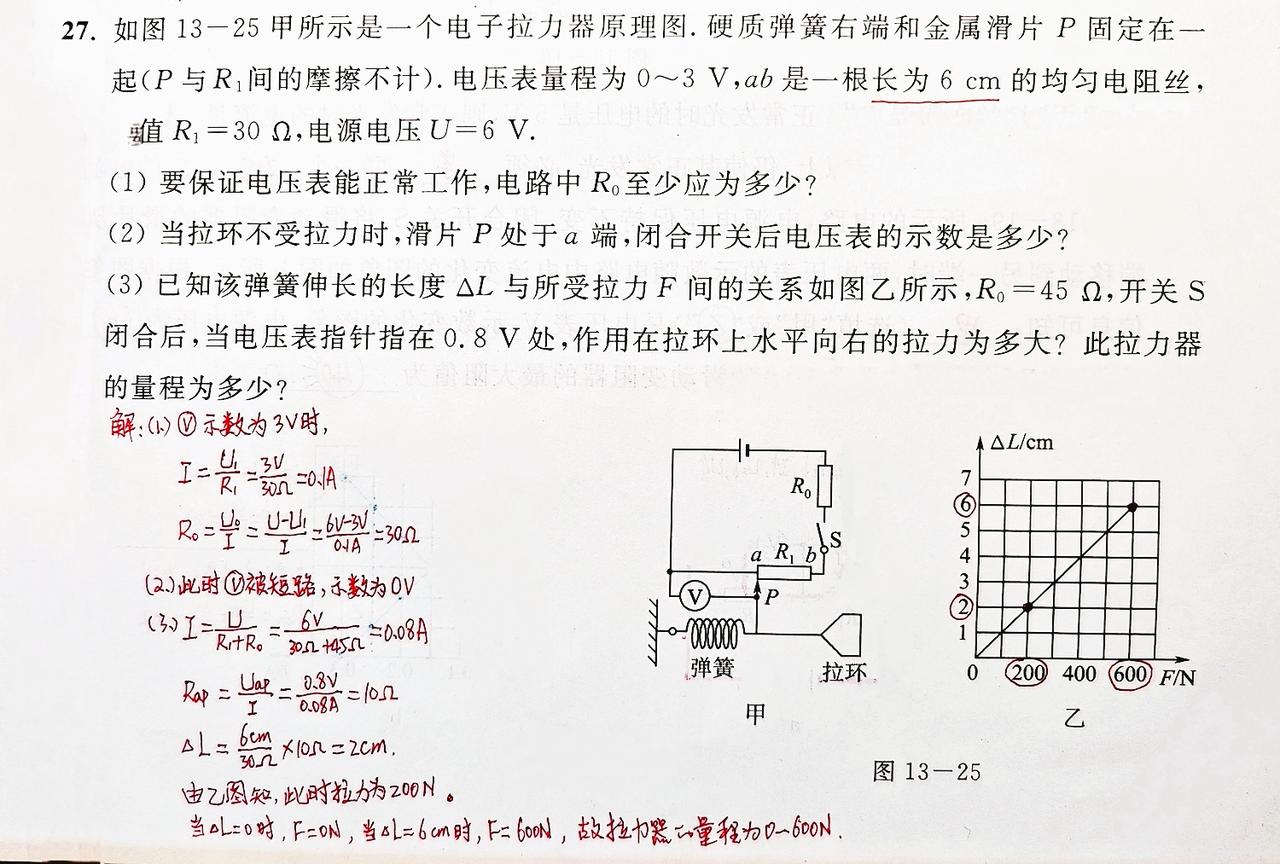 27. 如图 13-25 甲所示是一个电子拉力器原理图. 硬质弹簧右端和金属滑片 P 固定在一
起(P 与 R₁间的摩擦不计). 电压表量程为 0～3 V, ab 是一根长为 6 cm 的均匀电阻丝,
值 R₁=30 Ω, 电源电压 U=6 V.
(1) 要保证电压表能正常工作, 电路中 R₀至少应为多少?
(2) 当拉环不受拉力时, 滑片 P 处于 a 端, 闭合开关后电压表的示数是多少?
(3) 已知该弹簧伸长的长度 ΔL 与所受拉力 F 间的关系如图乙所示, R₀=45 Ω, 开关 S
闭合后, 当电压表指针指在 0.8 V 处, 作用在拉环上水平向右的拉力为多大? 此拉力器
的量程为多少?
解:(1.) Ⓥ示数为3V时,
I=U₁/R₁=3V/30Ω=0.1A
R₀=U₀/I=U-U₁/I=6V-3V/0.1A=30Ω
(2.)此时Ⓥ被短路, 示数为0V
(3.) I=U/R₁+R₀=6V/30Ω+45Ω=0.08A
Rap=Uap/I=0.8V/0.08A=10Ω
ΔL=6cm/30Ω×10Ω=2cm.
由乙图知, 此时拉力为200N。
当ΔL=0时, F=0N, 当ΔL=6cm时, F=600N, 故拉力器の量程为0~600N.
R₀
S
a R₁ b
V
P
弹簧
拉环
甲
ΔL/cm
7
6
5
4
3
2
1
0 200 400 600 F/N
乙
图 13-25